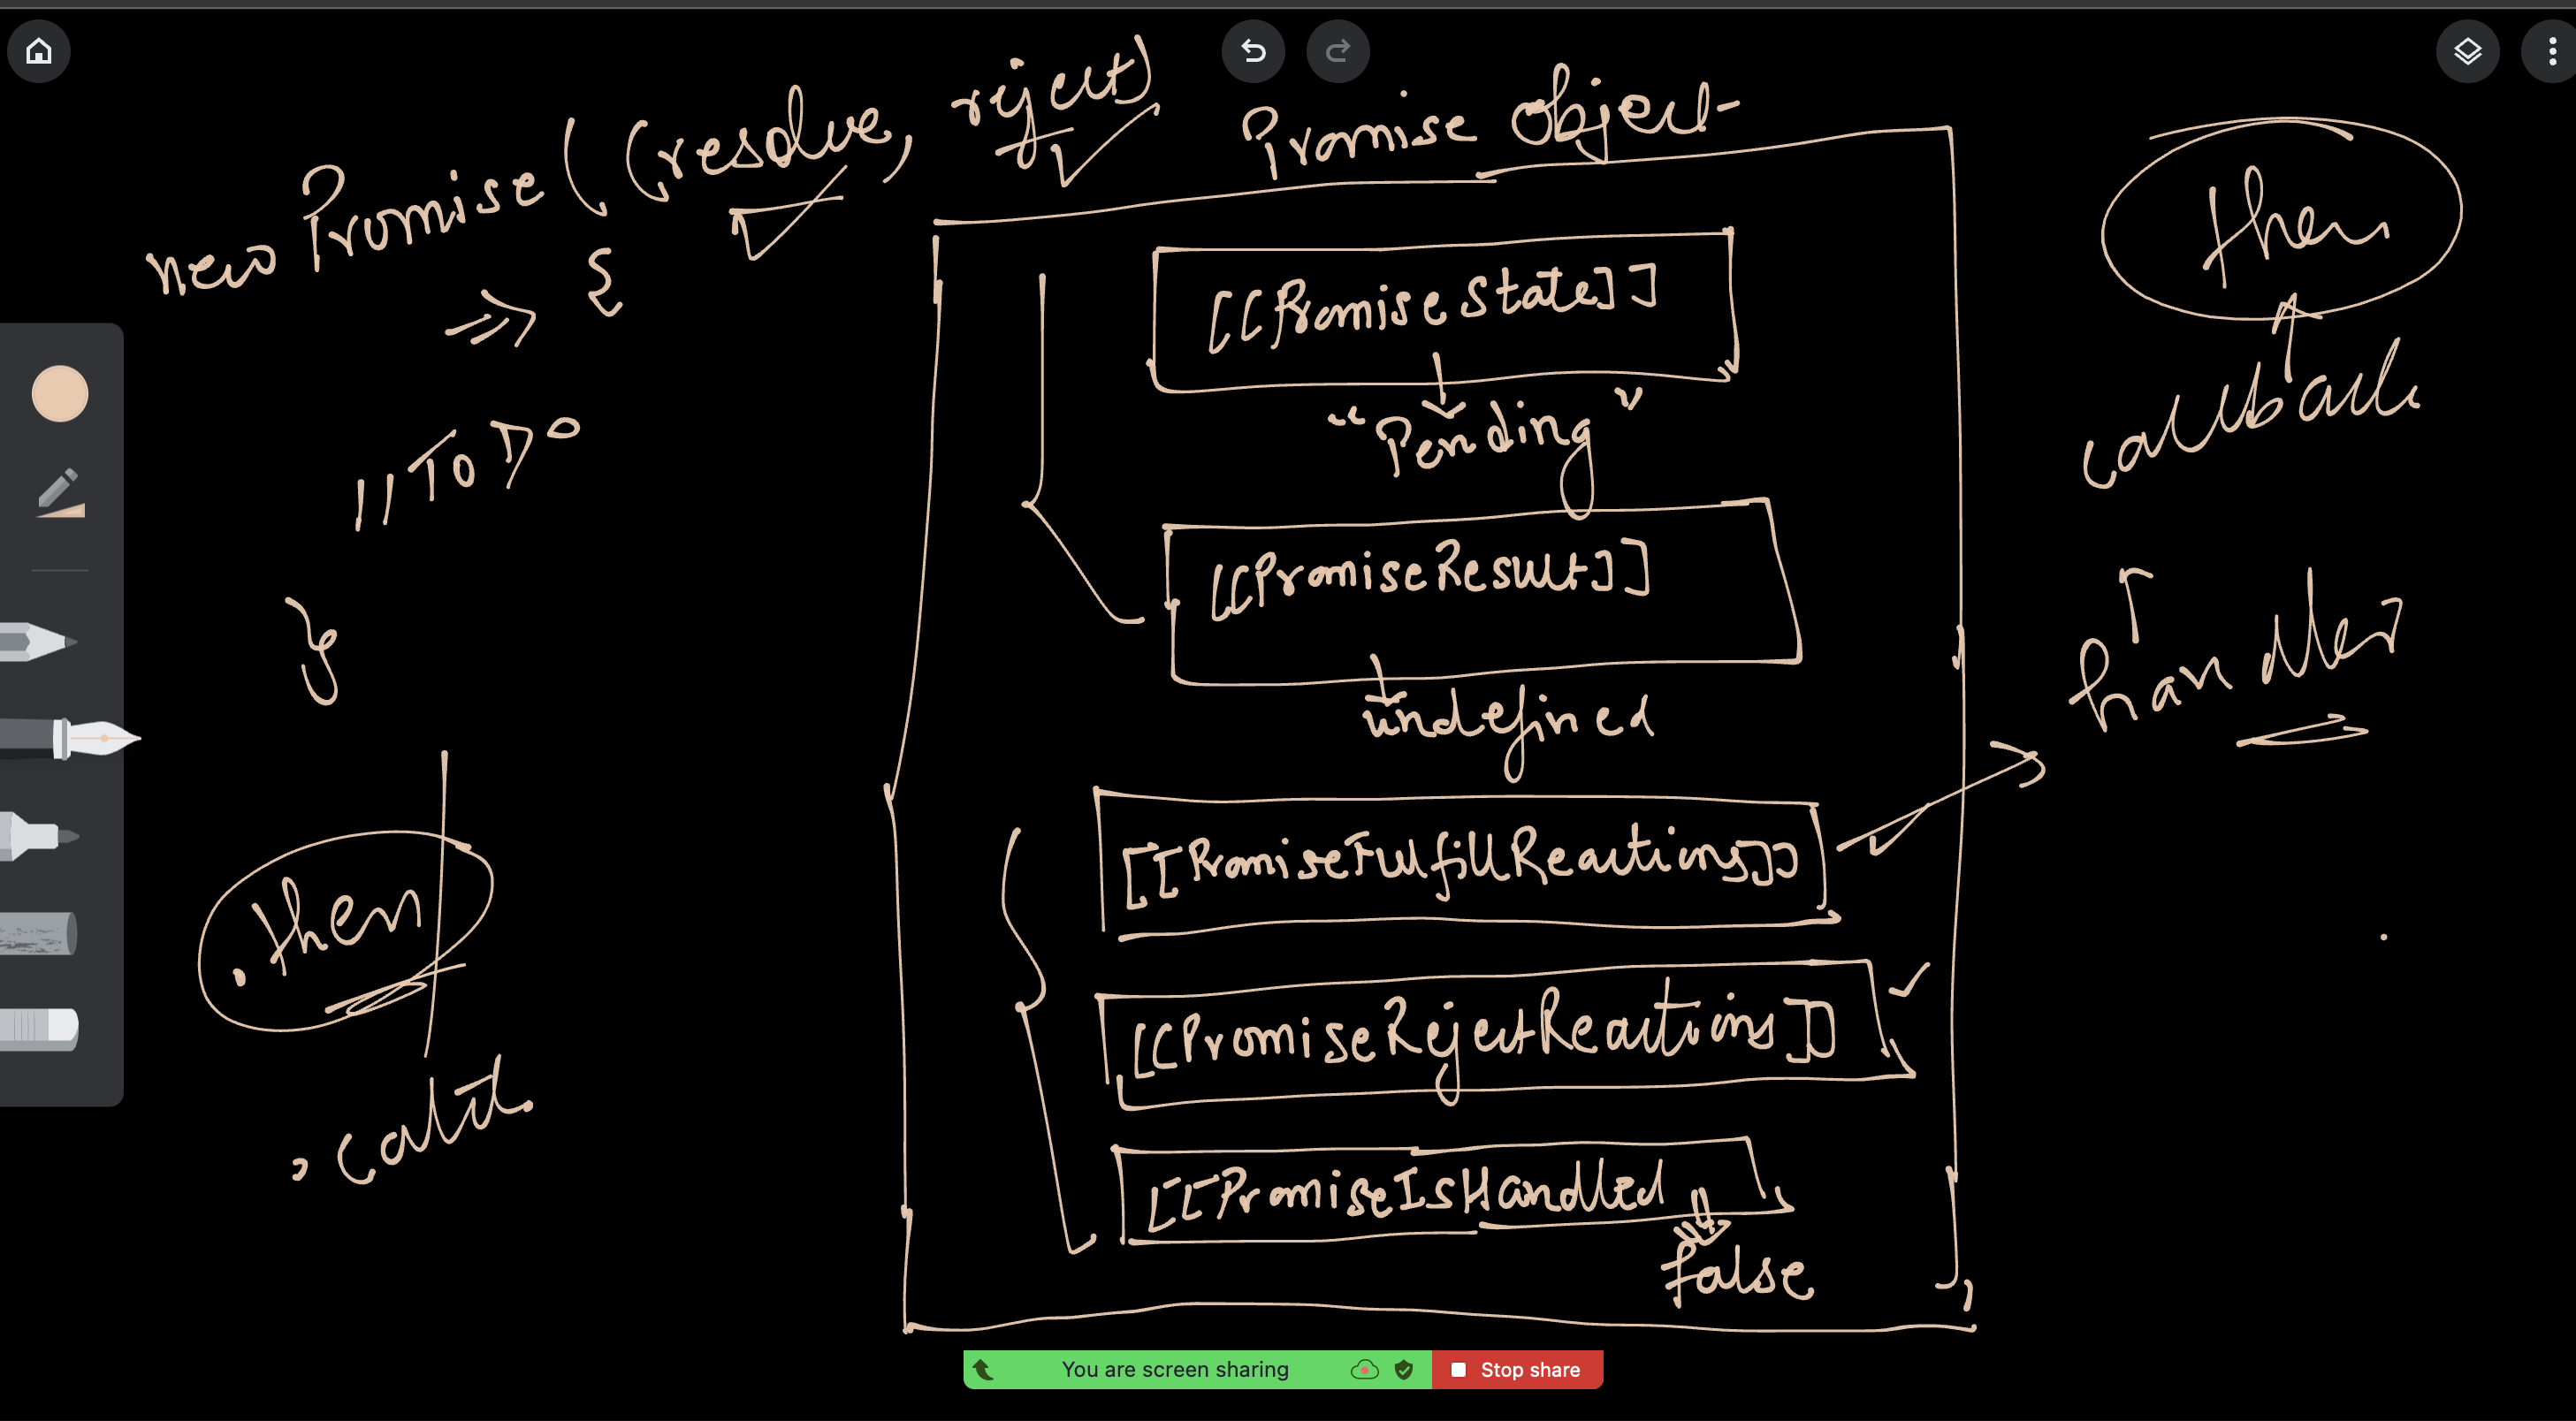 new Promise((resolve, reject)
=> {
//TODO
}
.then
.catch
Promise Object
[[PromiseState]]
"Pending"
[[PromiseResult]]
undefined
[[PromiseFulfillReactions]]
[[PromiseRejectReactions]]
[[PromiseIsHandled
false
then
callback
handler
You are screen sharing
Stop share